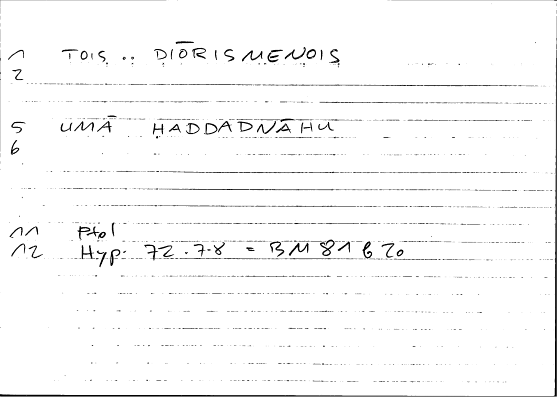 1 TOIS .. DIŌRISMENOIS
2
5 UMĀ HADDADNĀHU
6
11 Ptol
12 Hyp. 72.7-8 = BM 81 b 20